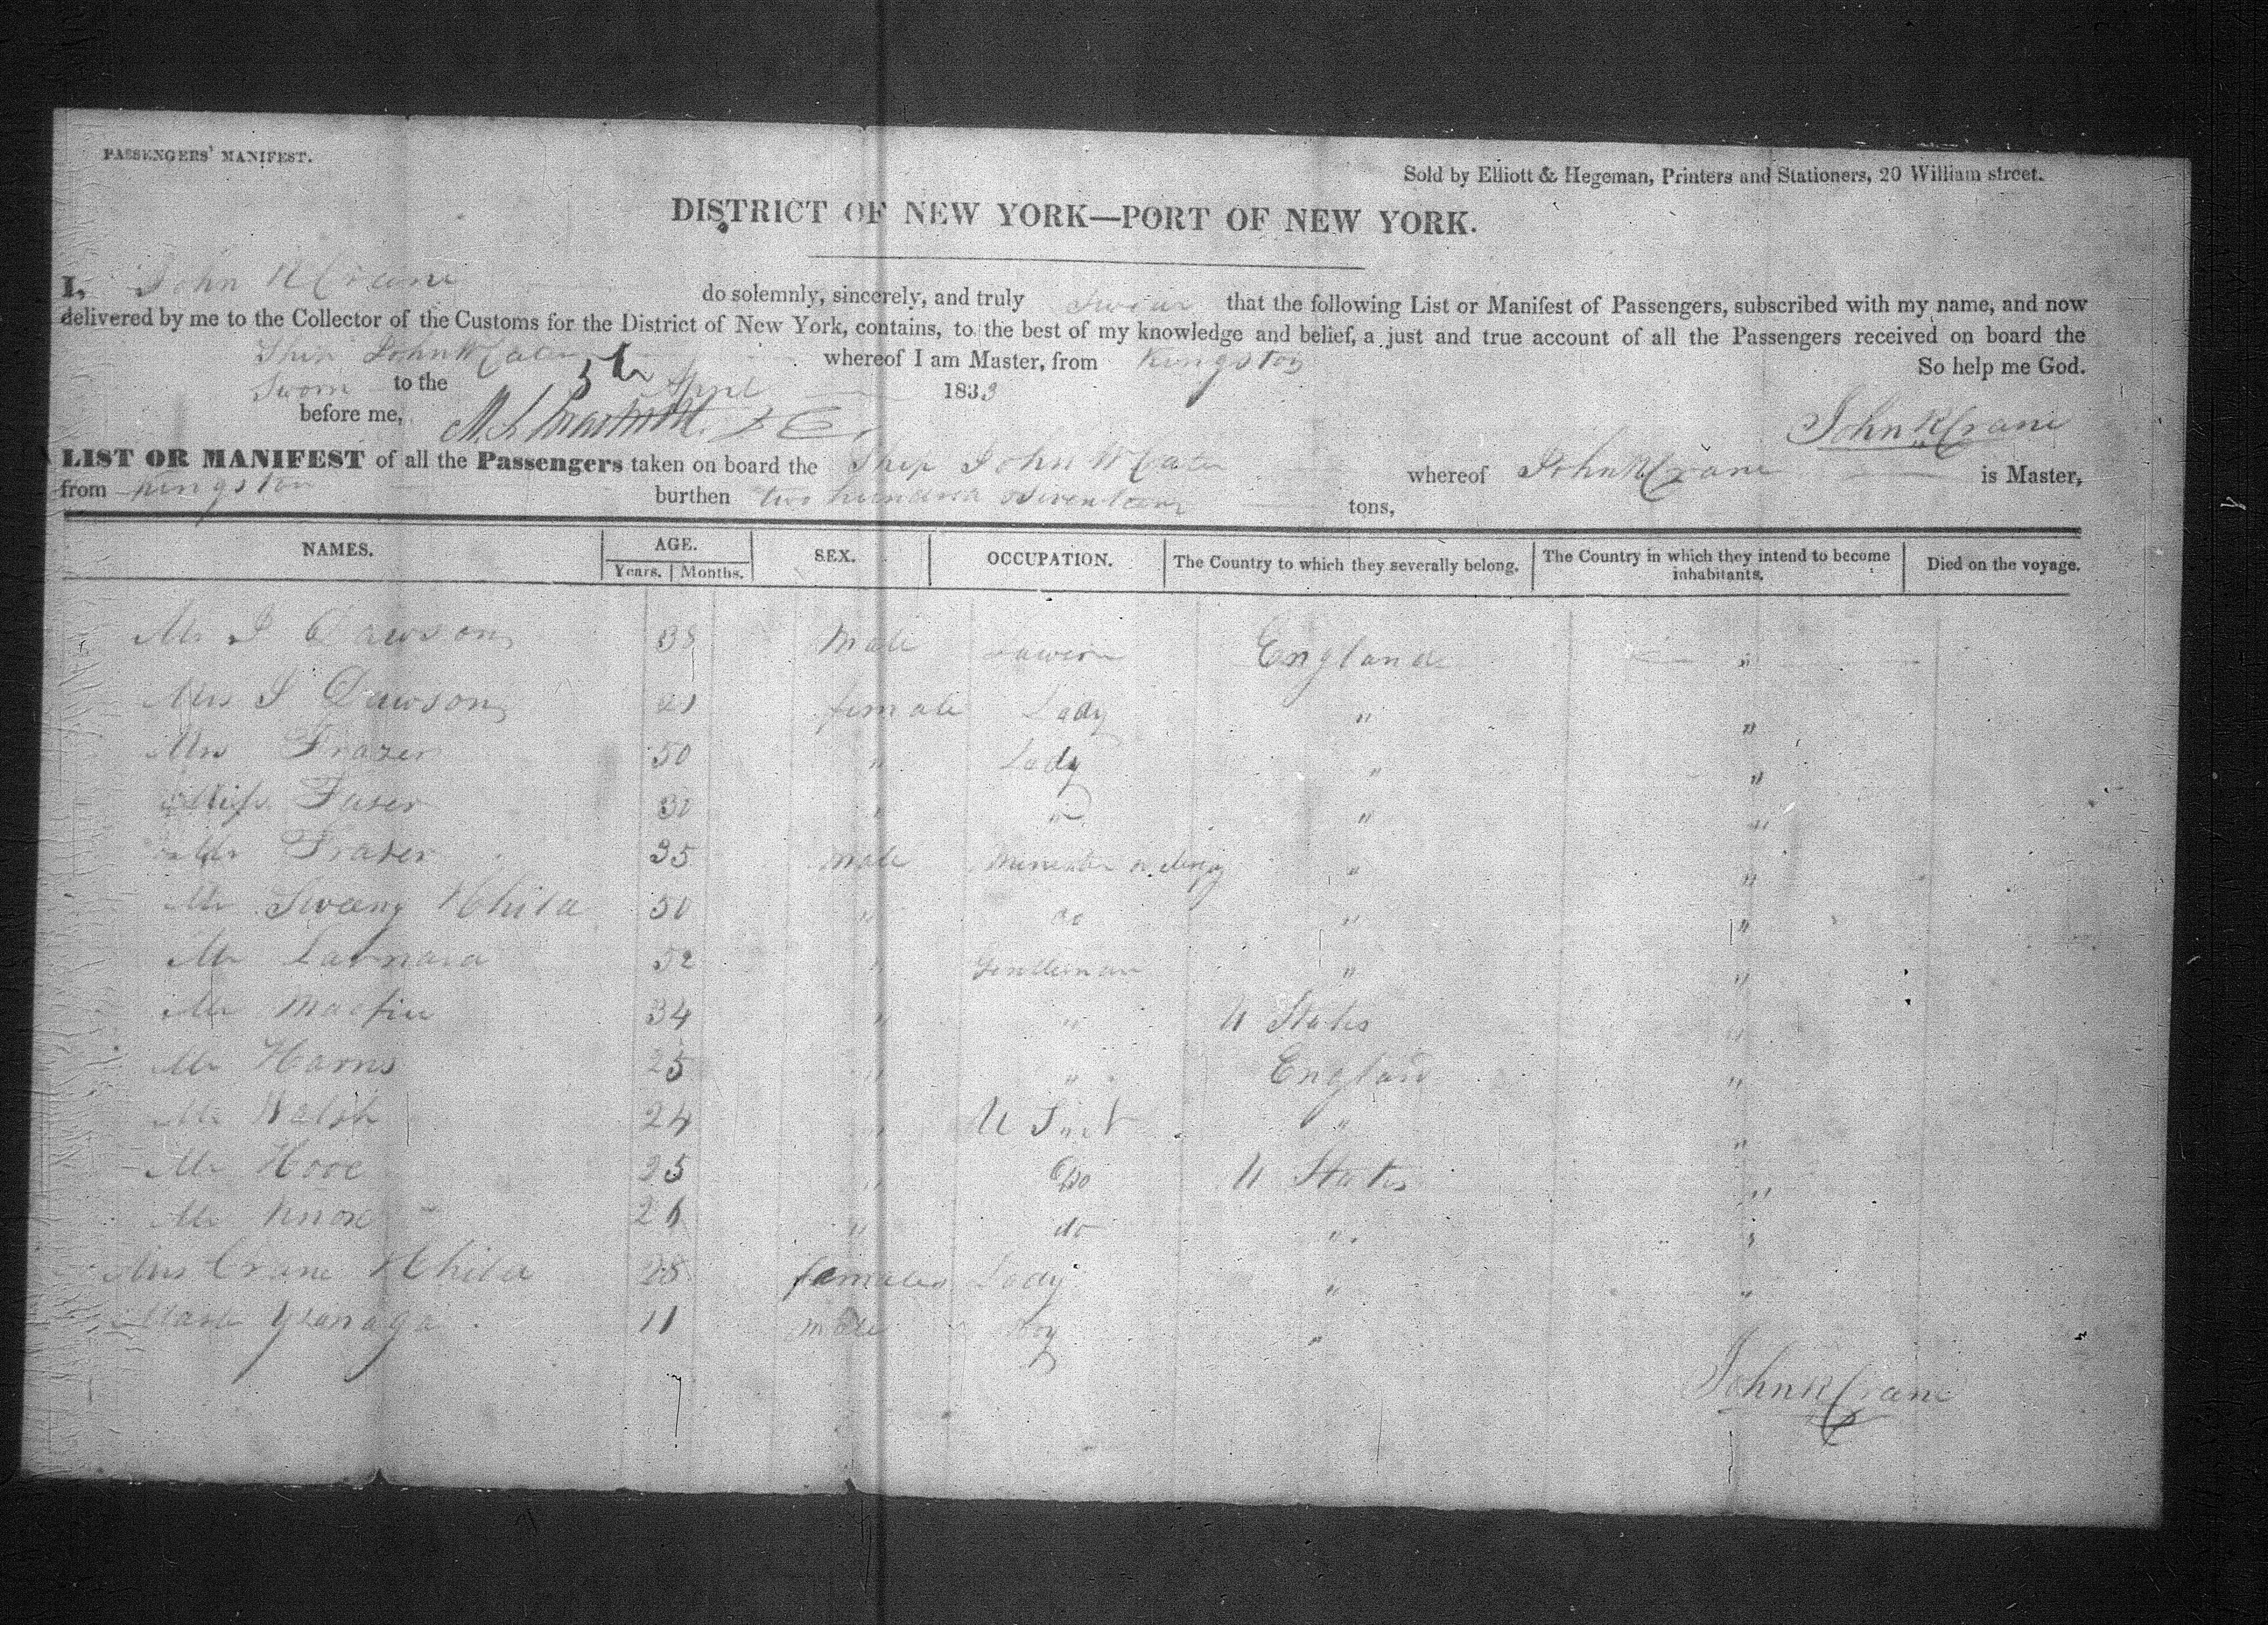 PASSENGERS' MANIFEST.
Sold by Elliott & Hegeman, Printers and Stationers, 20 William street.
DISTRICT OF NEW YORK—PORT OF NEW YORK.
I, John R Crane do solemnly, sincerely, and truly Swear that the following List or Manifest of Passengers, subscribed with my name, and now
delivered by me to the Collector of the Customs for the District of New York, contains, to the best of my knowledge and belief, a just and true account of all the Passengers received on board the
Ship John W Cater whereof I am Master, from Kingston So help me God.
Sworn to the 5th April 1833
before me, John R Crane
LIST OR MANIFEST of all the Passengers taken on board the Ship John W Cater whereof John R Crane is Master,
from Kingston burthen two hundred & Seventeen tons,
NAMES. AGE. Years. Months. SEX. OCCUPATION. The Country to which they severally belong. The Country in which they intend to become inhabitants. Died on the voyage.
Mr J Dawson 38 Male England "
Mrs J Dawson 21 female Lady " "
Mrs Frazer 50 " Lady " "
Miss Faser 30 " " " "
Mr Fraser 35 male Minester or clergy " "
Mr & Child 50 " do " "
Mr 52 " Gentleman " "
Mr 34 " " U States "
Mr Harris 25 " " England "
Mr Walsh 24 " " "
Mr Hooe 25 " Do U States "
Mr Knox 26 " do " "
Mrs Crane & Child 28 females Lady " "
11 male Boy "
John R Crane